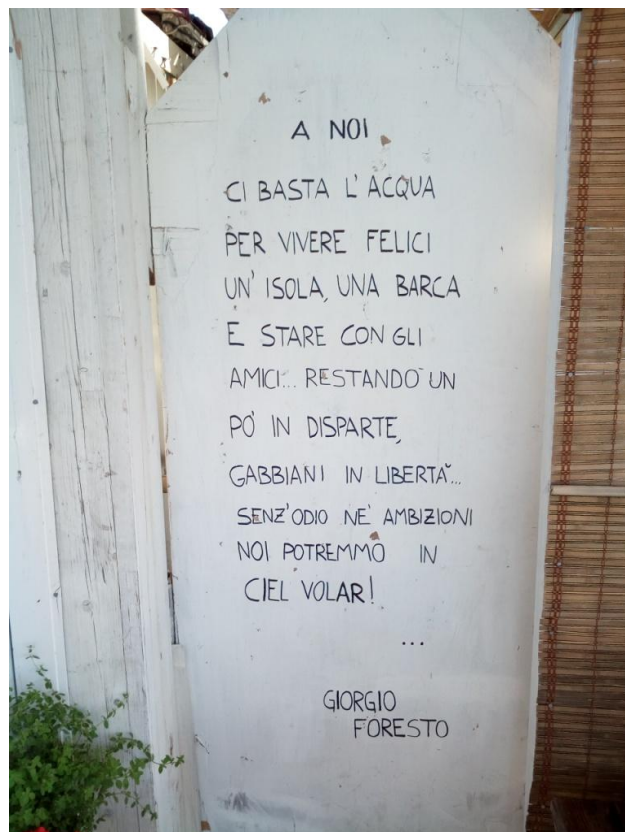 A NOI
CI BASTA L'ACQUA
PER VIVERE FELICI
UN' ISOLA, UNA BARCA
E STARE CON GLI
AMICI... RESTANDO UN
PO' IN DISPARTE,
GABBIANI IN LIBERTA'...
SENZ'ODIO NE' AMBIZIONI
NOI POTREMMO IN
CIEL VOLAR!
...
GIORGIO
FORESTO